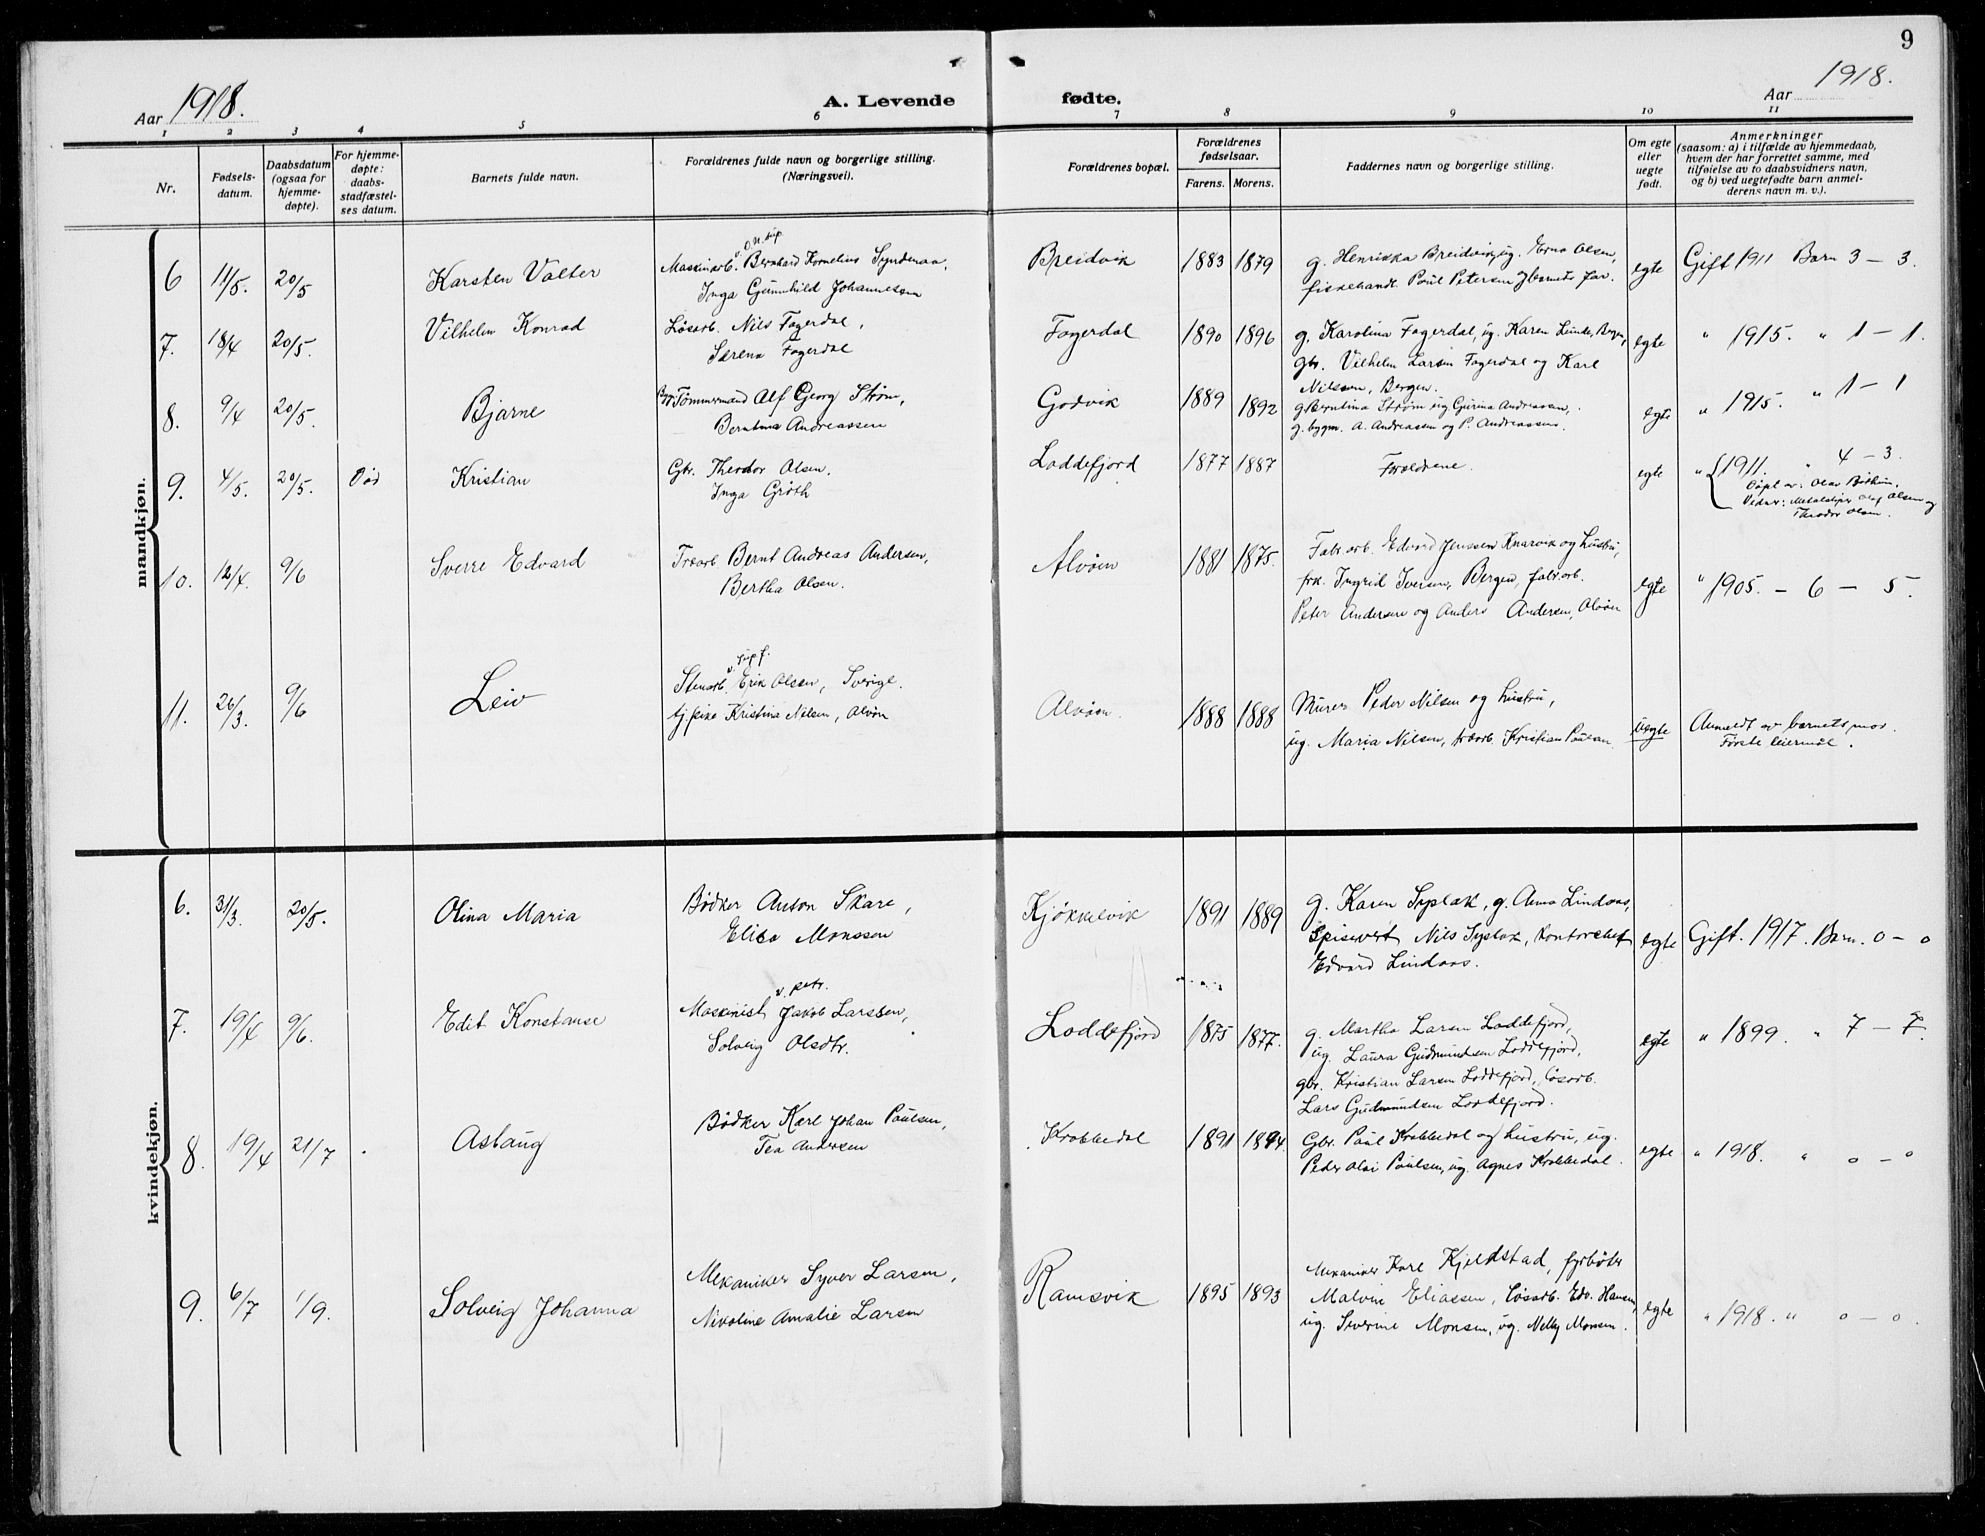 9
Aar 1918.
A. Levende fødte.
Aar 1918.
1 2 3 4 5 6 7 8 9 10 11
Nr.
Fødsels-
datum.
Daabsdatum
(ogsaa for
hjemme-
døpte).
For hjemme-
døpte:
daabs-
stadfæstel-
ses datum.
Barnets fulde navn.
Forældrenes fulde navn og borgerlige stilling.
(Næringsvei).
Forældrenes bopæl.
Forældrenes
fødselsaar.
Farens. Morens.
Faddernes navn og borgerlige stilling.
Om egte
eller
uegte
født.
Anmerkninger
(saasom: a) i tilfælde av hjemmedaab,
hvem der har forrettet samme, med
tilføielse av to daabsvidners navn,
og b) ved uegtefødte barn anmel-
derens navn m. v.).
mandkjøn.
6 11/5. 20/5 Karsten Valter
Maskinarb. Bernhard Kornelius Syndenaa,
Inga Gunnhild Johannesen
Breidvik 1883 1879
g. Henrikka Breidvik, ug. Erna Olsen,
fiskehandl. Paul Petersen, barnets far.
egte Gift 1911 Barn 3 – 3.
7. 18/4 20/5. Vilhelm Konrad
Løsarb. Nils Fagerdal,
Serena Fagerdal
Fagerdal 1890 1896
g. Karolina Fagerdal, ug. Karen Linde, Bergen,
gbr. Vilhelm Larsen Fagerdal og Karl
Nilssen, Bergen.
egte " 1915. " 1 – 1.
8. 9/4 20/5. Bjarne
Tømmermand Alf Georg Strøm,
Berntina Andreassen
Godvik 1889 1892
g. Berntina Strøm ug. Gurina Andreassen,
g. bygm. A. Andreassen og P. Andreassen.
egte " 1915. " 1 – 1
9. 4/5. 20/5. Død Kristian
Gbr. Theodor Olsen,
Inga Grøth
Loddefjord 1877 1887
Forældrene.
egte " 1911. " 4 – 3.
Døpt av: Olav
Vidner: Olaf Olsen og
Theodor Olsen.
10. 12/4. 9/6 Sverre Edvard
Træarb. Bernt Andreas Andersen,
Bertha Olsen.
Alvøen 1881 1875.
Fabr.arb. Edvard Jenssen Knarvik og hustru,
frk. Ingrid Iversen, Bergen, fabr.arb.
Peter Andersen og Anders Andersen, Alvøen
egte " 1905. – 6 – 5.
11. 26/3. 9/6 Leiv
Stenarb. Erik Olsen, Sverige.
tj. pike Kristina Nilsen, Alvøen
Alvøen. 1888 1888
Murer Peder Nilsen og hustru,
ug. Maria Nilsen, træarb. Kristian Paulsen
uegte Anmeldt av barnets mor.
Første leiermål.
kvindekjøn.
6. 31/3. 20/5. Olina Maria
Bødker Anton Skare,
Elisa Monssen
Kjøkkelvik 1891 1889
g. Karen Syslak, g. Anna Lindaas,
Spisevert Nils Syslak, kontorchef
Edvard Lindaas.
egte Gift. 1917. Barn. 0 – 0
7. 19/4 9/6. Edit Konstanse
Maskinist Jakob Larssen,
Solveig Olsdtr.
Loddefjord 1875 1877.
g. Martha Larsen Loddefjord,
ug. Laura Gudmundsen Loddefjord,
gbr. Kristian Larsen Loddefjord, løsarb.
Lars Gudmundsen Loddefjord.
egte " 1899. " 7 – 7.
8. 19/4 21/7 Aslaug
Bødker Karl Johan Paulsen,
Tea Andersen
Krabbedal 1891 1894.
Gbr. Paul Krabbedal og hustru, ug.
Peder Olai Paulsen, ug. Agnes Krabbedal.
egte " 1918. " 0 – 0
9. 6/7 1/9. Solveig Johanna
Mekaniker Syver Larsen,
Nikoline Amalie Larsen
Ramsvik 1895 1893
Mekaniker Karl Kjeldstad, fyrbøter
Malvin Eliassen, Løsarb. Edv. Hansen,
ug. Severine Monsen, ug. Nelly Monsen.
egte " 1918. " 0 – 0.